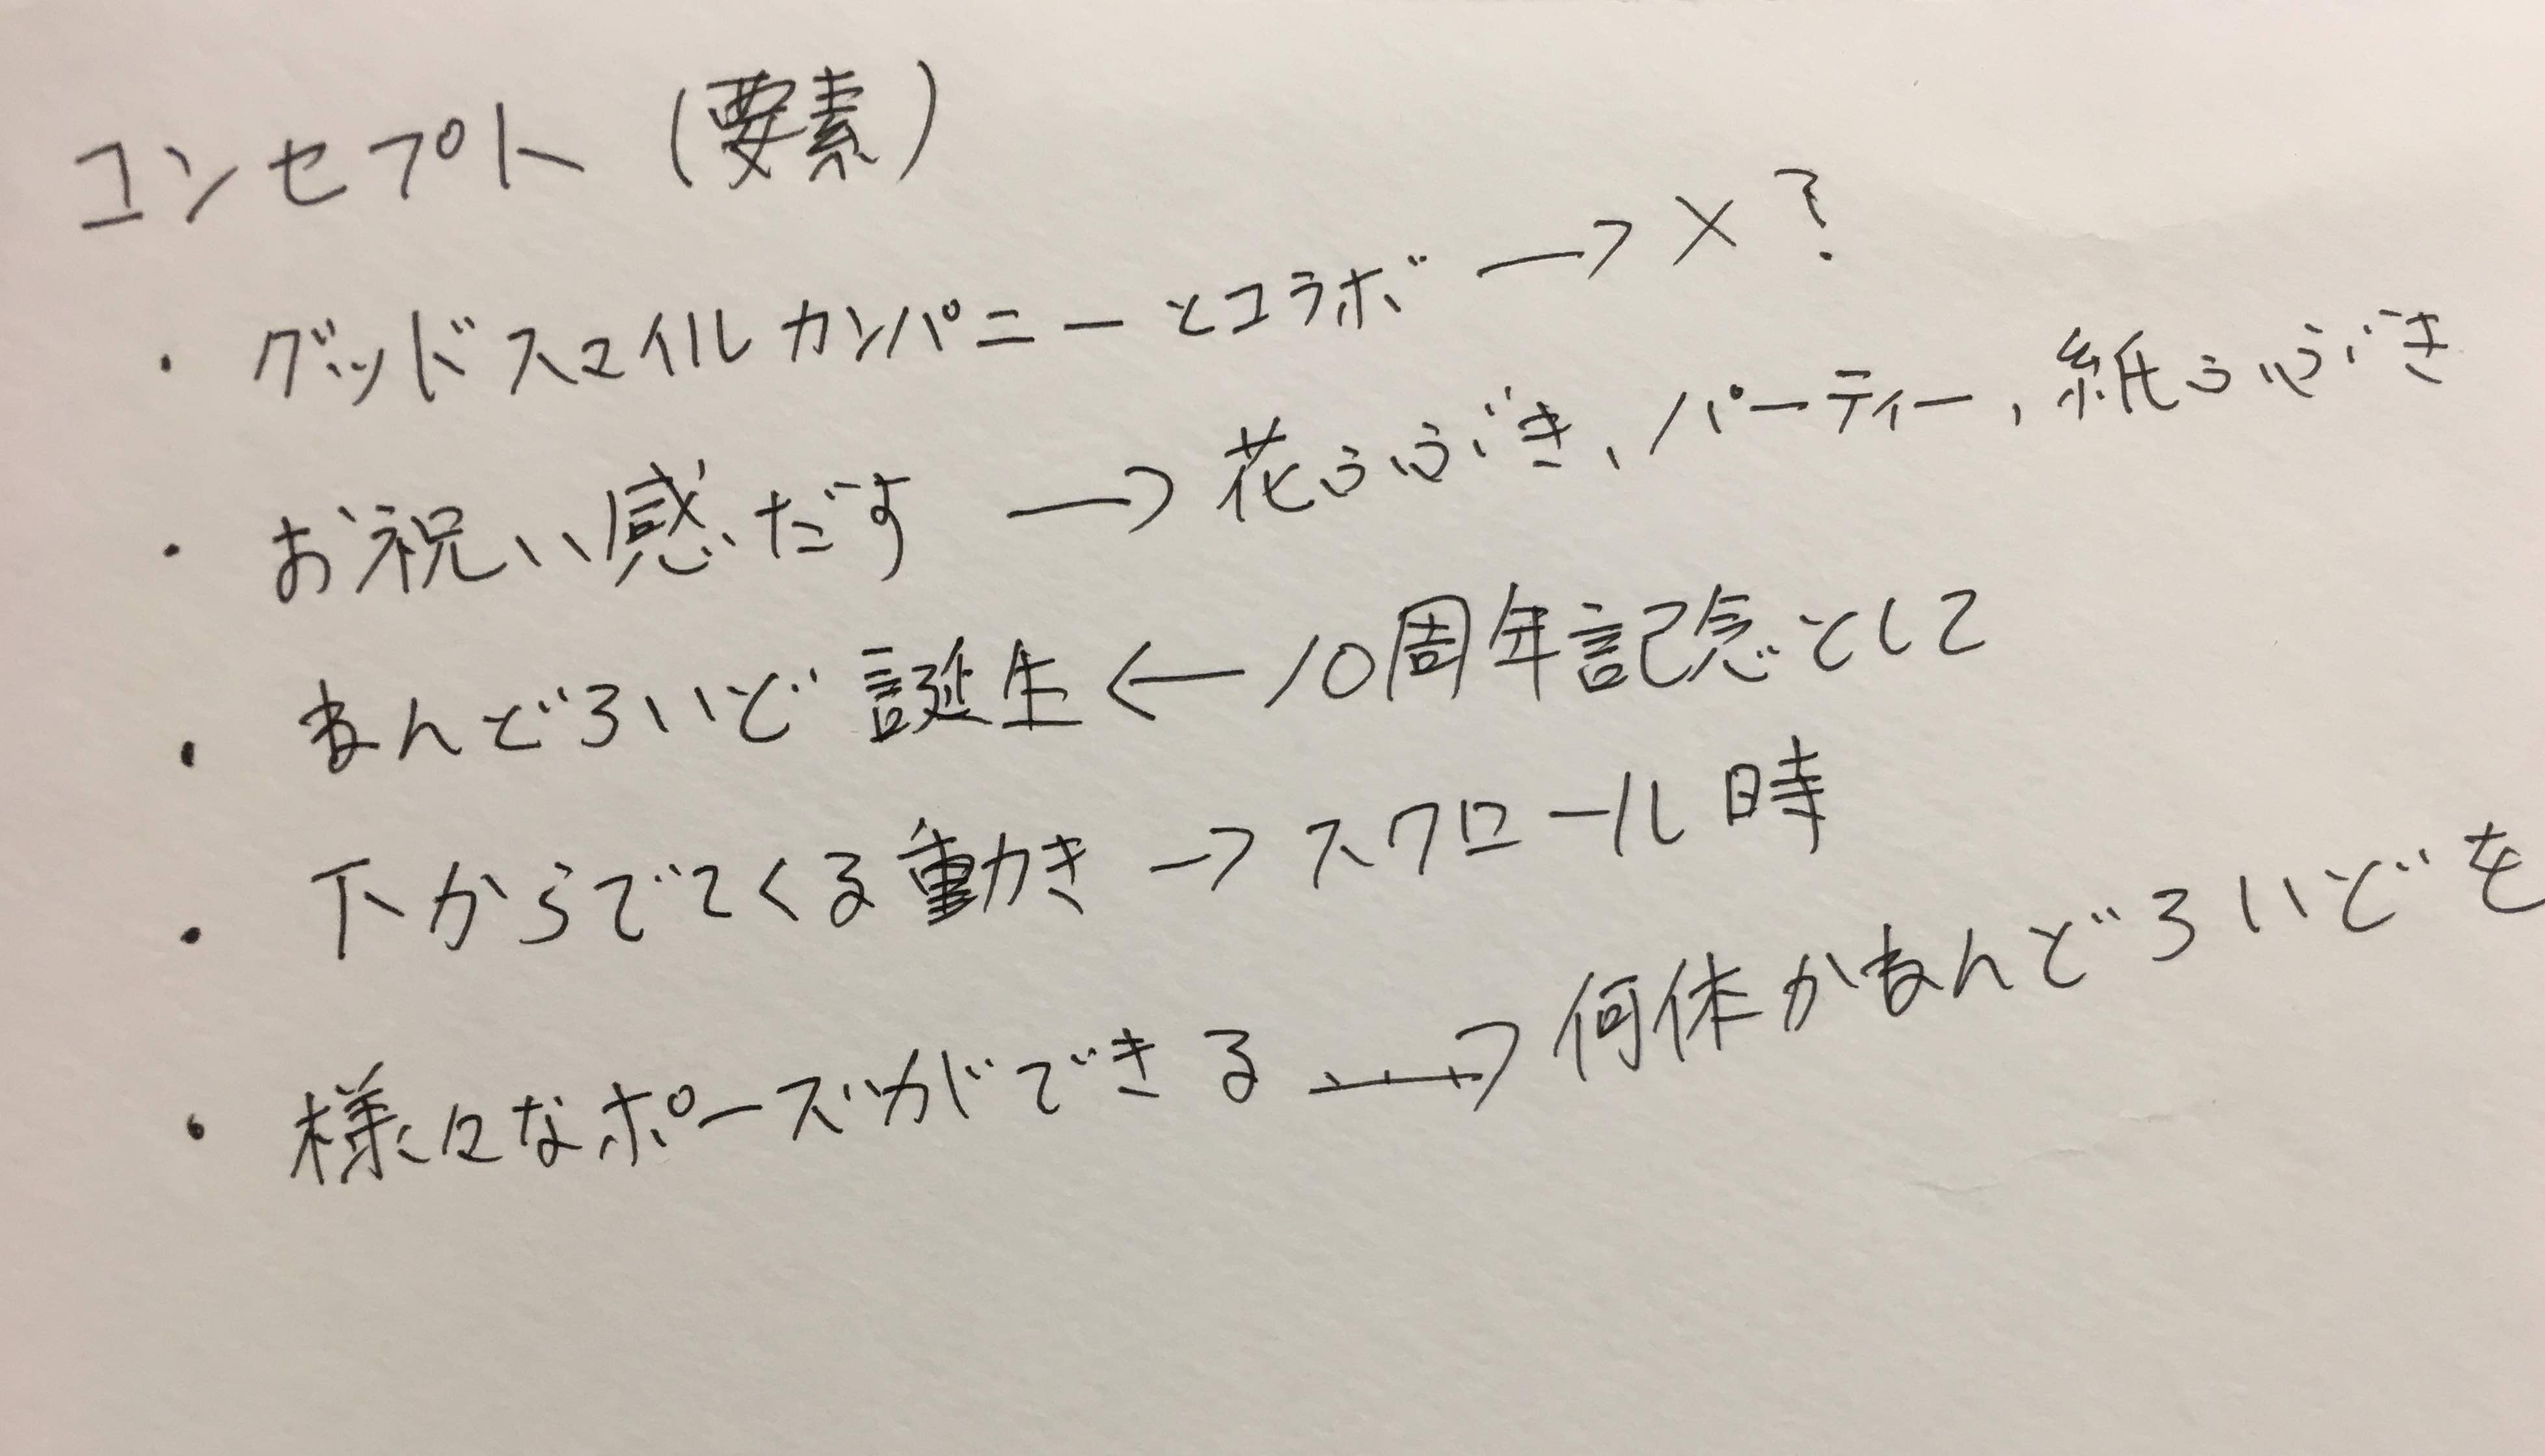 コンセプト (要素)
・グッドスマイルカンパニーとコラボ → × ?
・お祝い感だす → 花ふぶき、パーティー、紙ふぶき
・ねんどろいど誕生 ← 10周年記念として
・下からでてくる動き → スクロール時
・様々なポーズができる → 何体かねんどろいどを